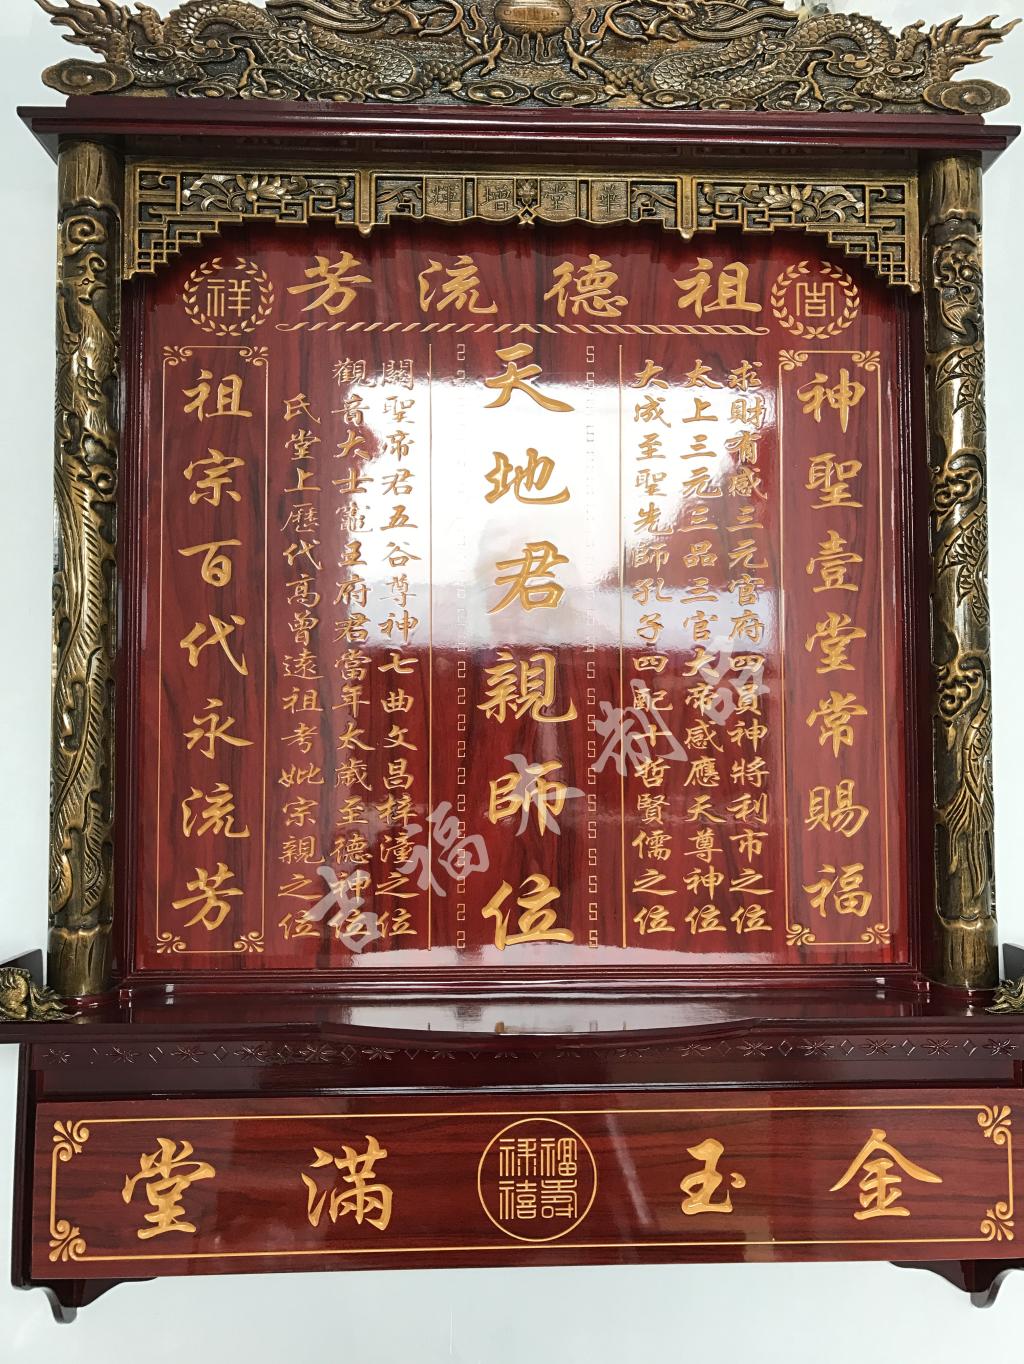 華堂增輝
吉
祖德流芳
祥
神聖壹堂常賜福
求財有感三元官府四員神將利市之位
太上三元三品三官大帝感應天尊神位
大成至聖先師孔子四配十哲賢儒之位
天地君親師位
關聖帝君五谷尊神七曲文昌梓潼之位
觀音大士竈王府君當年太歲至德神位
氏堂上歷代高曾遠祖考妣宗親之位
祖宗百代永流芳
吉福木制器
金玉
福祿壽禧
滿堂